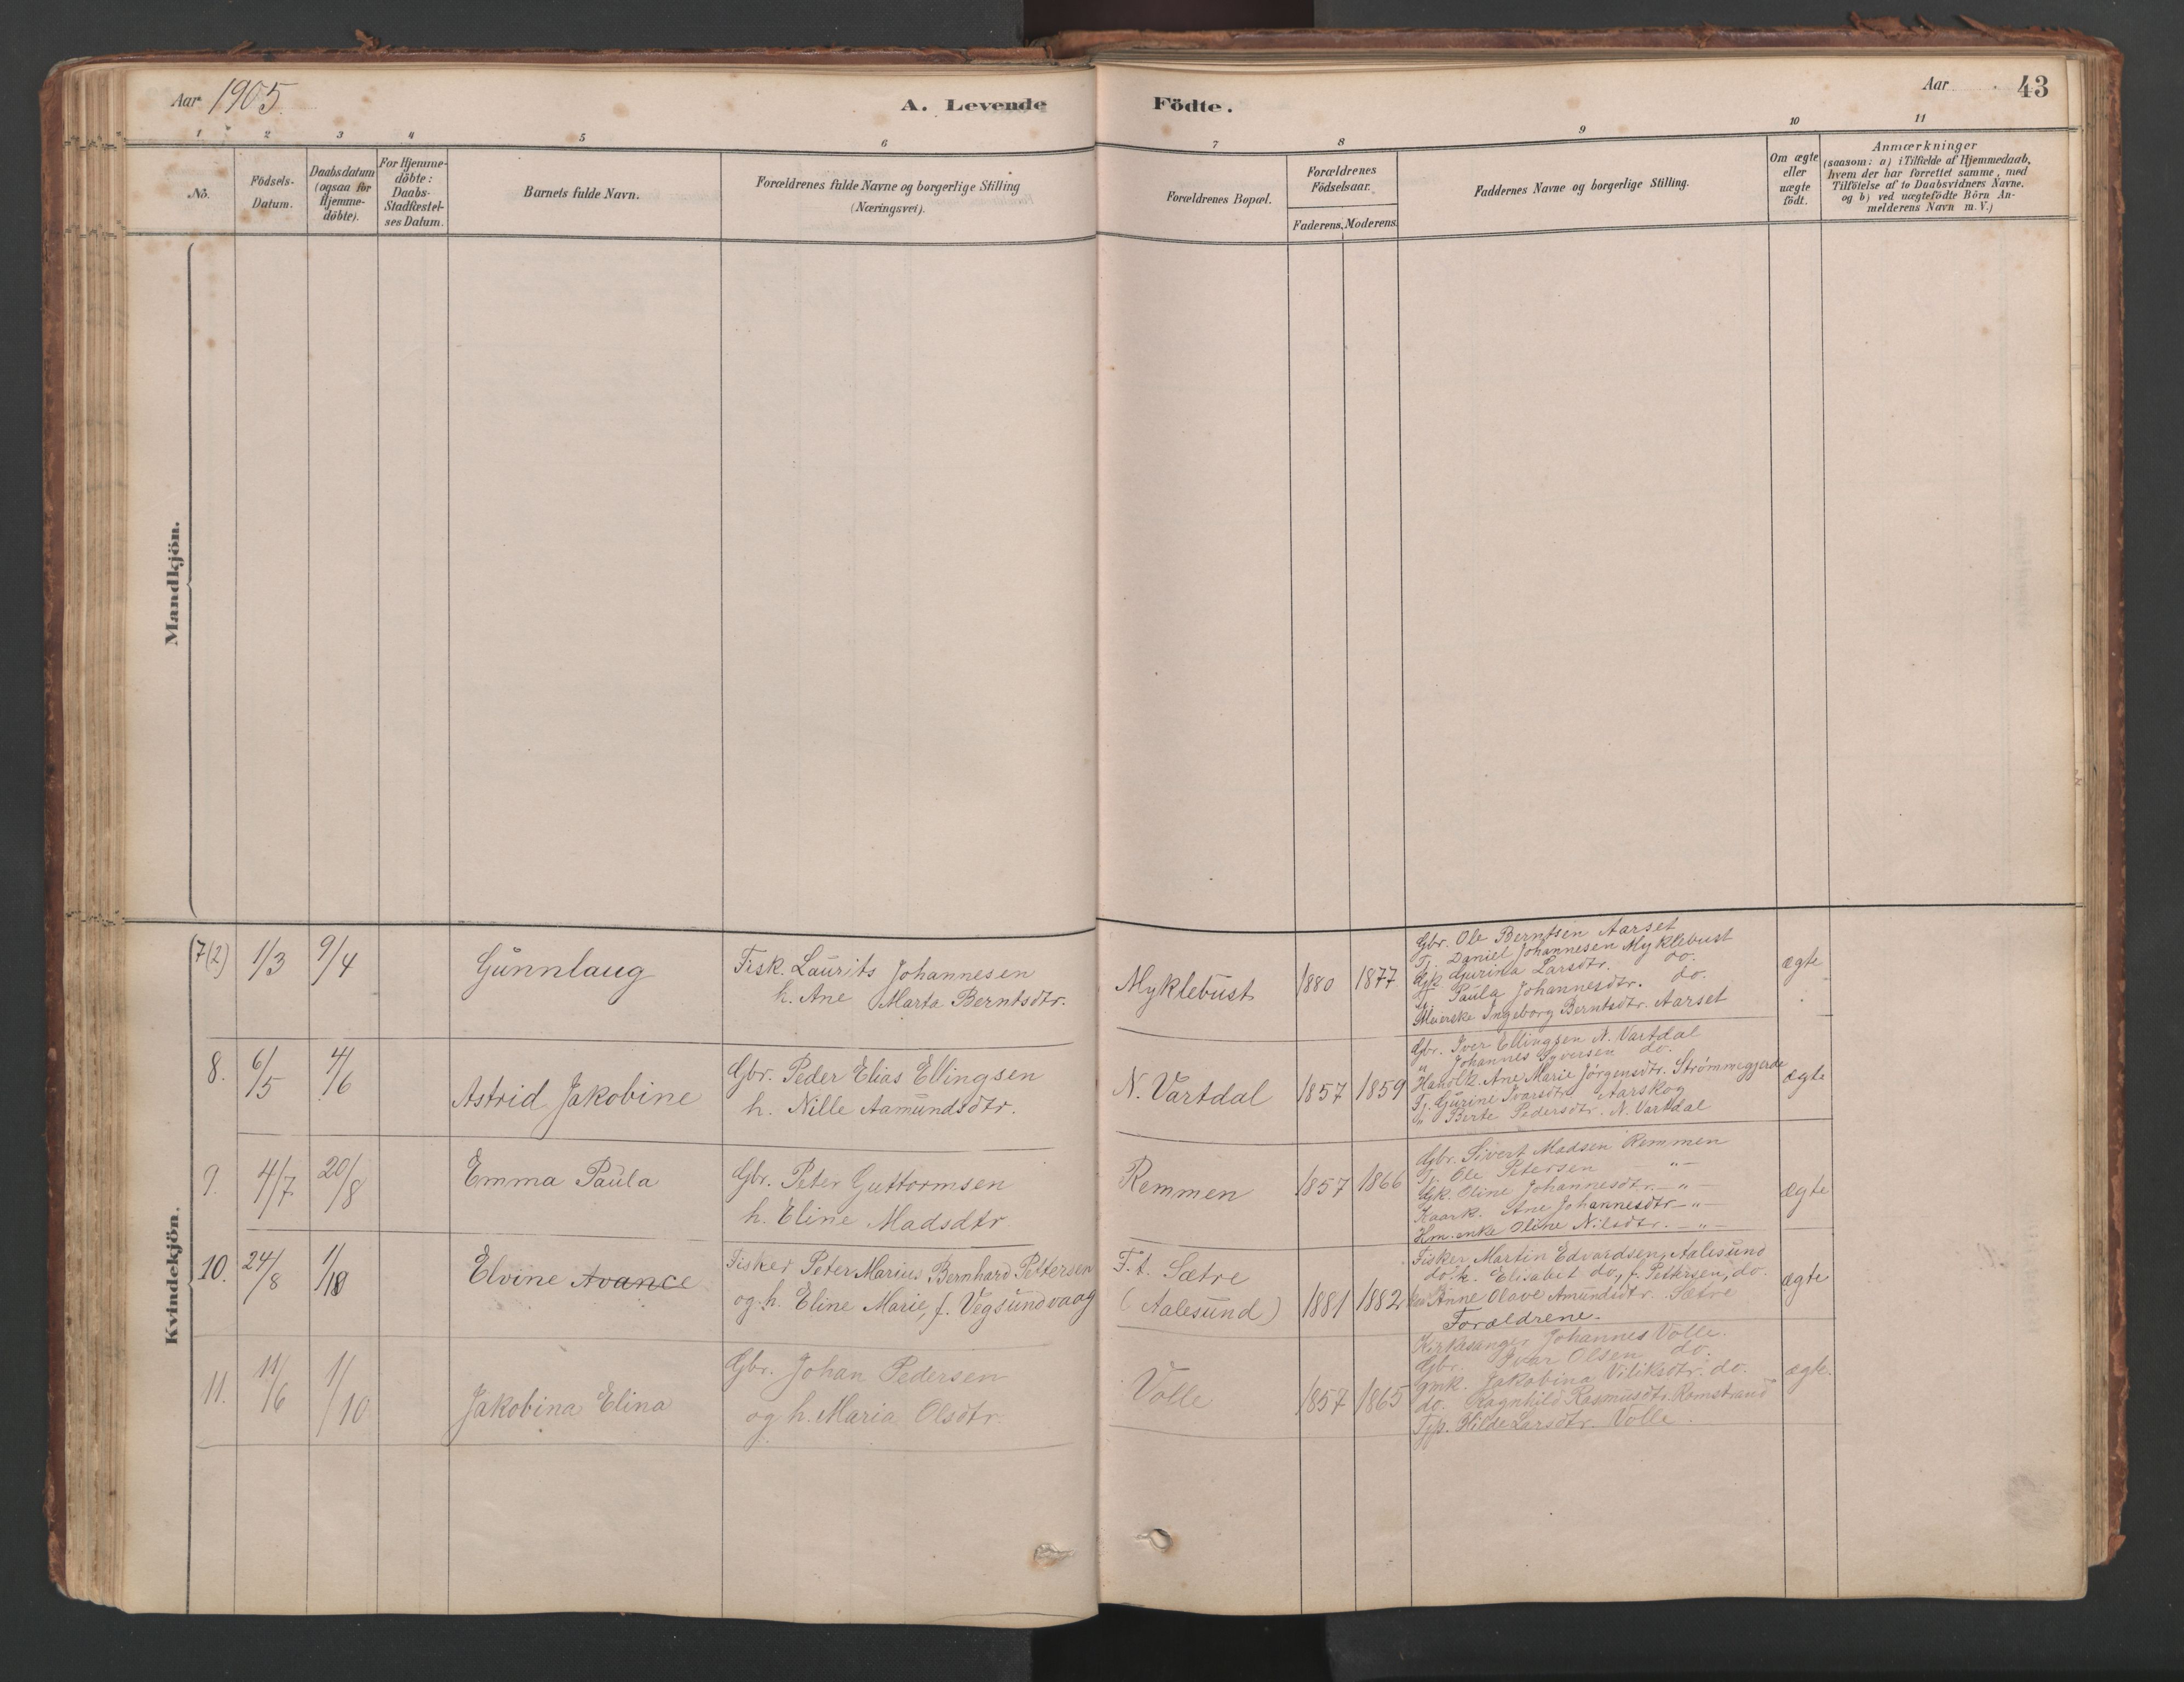 Aar 1905.
A. Levende Födte.
Aar
43
1 2 3 4 5 6 7 8 9 10 11
No.
Födsels-Datum.
Daabsdatum (ogsaa for Hjemme-döbte).
For Hjemme-döbte: Daabs-Stadfæstel-ses Datum.
Barnets fulde Navn.
Forældrenes fulde Navne og borgerlige Stilling (Næringsvei).
Forældrenes Bopæl.
Forældrenes Födselsaar.
Faderens. Moderens.
Faddernes Navne og borgerlige Stilling.
Om ægte eller uægte födt.
Anmærkninger
(saasom: a) i Tilfælde af Hjemmedaab,
hvem der har forrettet samme, med
Tilföielse af to Daabsvidners Navne.
og b) ved uægtefödte Börn An-
melderens Navn m. V.)
Mandkjön.
Kvindekjön.
(7(2) 1/3 9/4 Gunnlaug
Fisk. Laurits Johannesen
h. Ane Marta Berntsdtr.
Myklebust 1880 1877
Gbr. Ole Berntsen Aarset
Tj. Daniel Johannesen Myklebust
Gk. Gurina Larsdtr. do.
Tj. Paula Johannesdtr. do.
Meierske Ingeborg Berntsdtr. Aarset
ægte
8. 6/5 4/6 Astrid Jakobine
Gbr. Peder Elias Ellingsen
h. Nille Aamundsdtr.
N. Vartdal 1857 1859
Gbr. Iver Ellingsen N. Vartdal
" Johannes Syversen do.
Handlk. Ane Marie Jörgensdtr. Strømmegjerde
Tj. Gurine Ivarsdtr. Aarskog
" Berte Pedersdtr. N. Vartdal
ægte
9. 4/7 20/8 Emma Paula
Gbr. Peter Guttormsen
h. Eline Madsdtr.
Remmen 1857 1866
Gbr. Sivert Madsen Remmen
Tj. Ole Petersen — " —
Gk. Oline Johannesdtr. — " —
Kaark. Ane Johannesdtr — " —
Hm. enke Oline Nilsdtr. — " —
ægte
10. 24/8 1/10 Elvine Avance
Fisker Peter Marius Bernhard Pettersen
og h. Eline Marie, f. Vegsundvaag
F.t. Sætre
(Aalesund) 1881 1882
Fisker Martin Edvardsen, Aalesund
do. k. Elisabet do., f. Pettersen, do.
Anne Olave Amundsdtr. Sætre
Forældrene.
ægte
11. 11/6 1/10 Jakobina Elina
Gbr. Johan Pedersen
og h. Maria Olsdtr.
Volle 1857 1865
Kirkesanger Johannes Volle.
Gbr. Ivar Olsen do.
gmk. Jakobina Viliksdtr. do.
do. Ragnhild Rasmusdtr. Romstrand
Tjp. Hilde Larsdtr. Volle.
ægte.